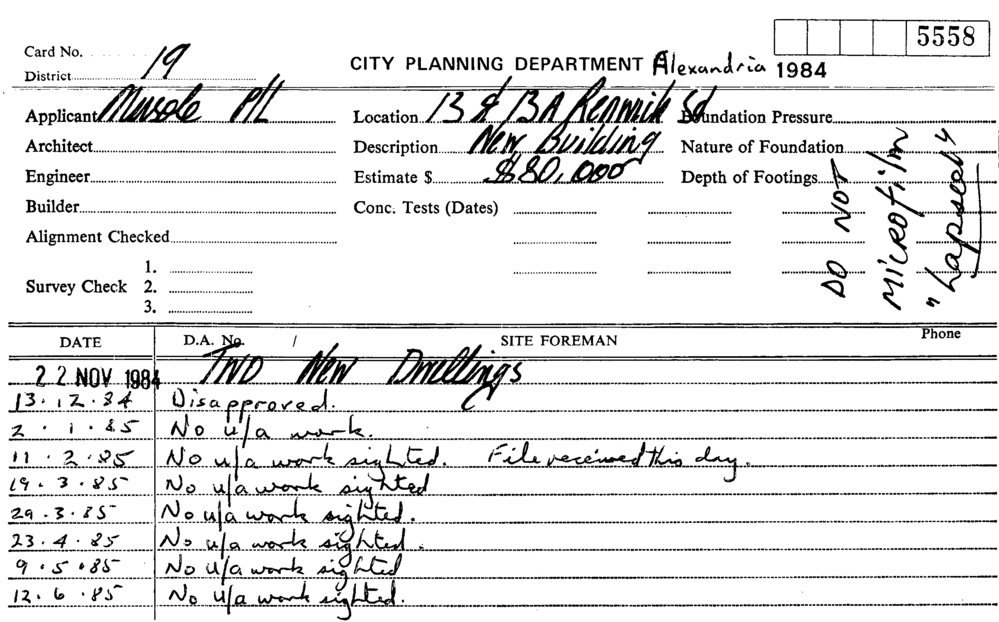 5558
Card No. 19
CITY PLANNING DEPARTMENT Alexandria 1984
District
Applicant P/L Location 13 & 13A Renwick Sd Foundation Pressure
Architect Description New Building Nature of Foundation
Engineer Estimate $ $80,000 Depth of Footings
Builder Conc. Tests (Dates)
Alignment Checked
1.
Survey Check 2.
3.
DO NOT
MICROFILM
"Lapsed"
DATE D.A. No. / SITE FOREMAN Phone
22 NOV 1984 TWO New Dwellings
13.12.84 Disapproved.
2.1.85 No u/a work.
11.2.85 No u/a work sighted. File received this day.
19.3.85 No u/a work sighted
29.3.85 No u/a work sighted.
23.4.85 No u/a work sighted.
9.5.85 No u/a work sighted
12.6.85 No u/a work sighted.